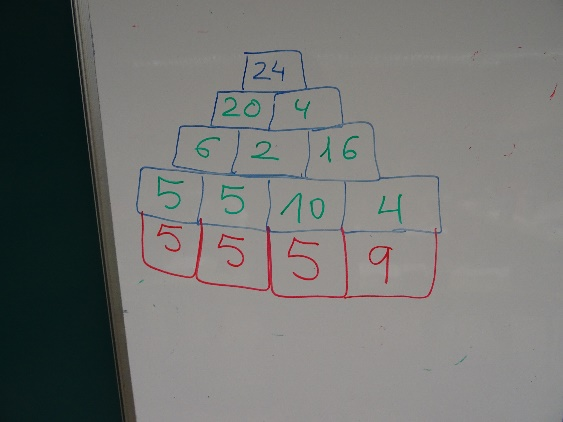 24
20 4
6 2 16
5 5 10 4
5 5 5 9